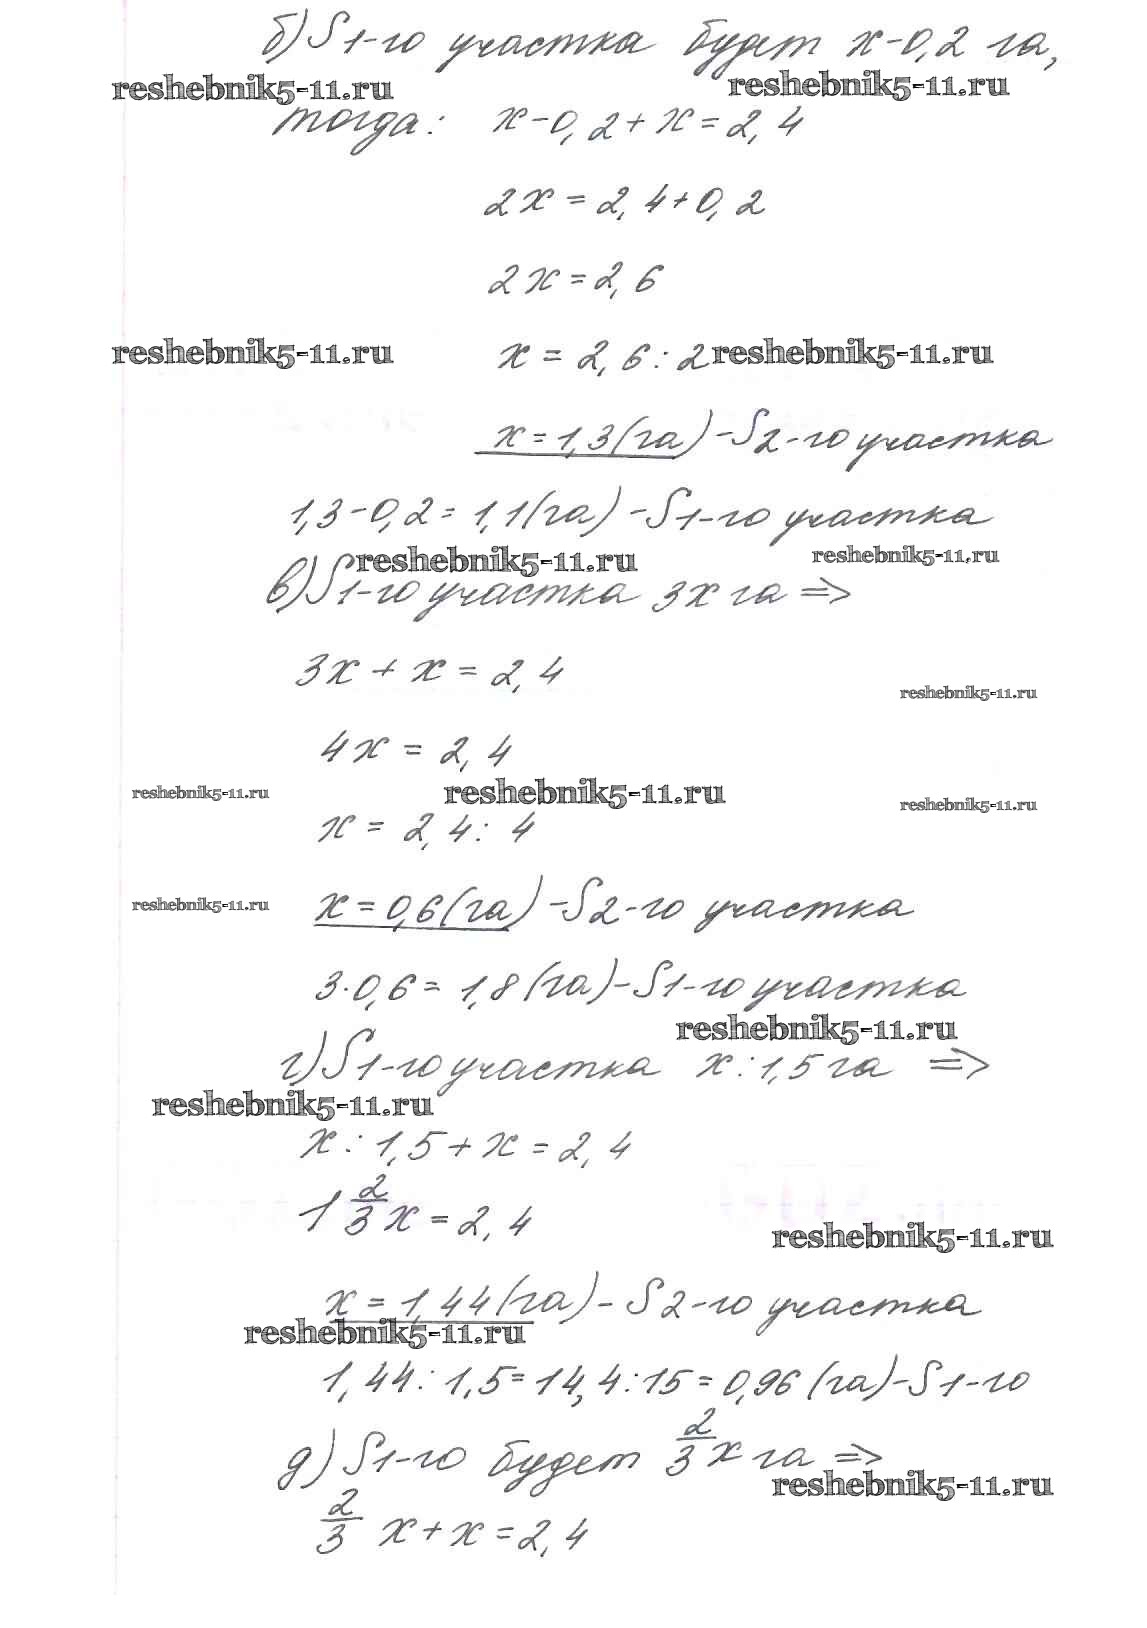 б) S 1-го участка будет x-0,2 га,
reshebnik5-11.ru reshebnik5-11.ru
тогда: x-0,2+x=2,4
2x=2,4+0,2
2x=2,6
reshebnik5-11.ru x = 2,6:2 reshebnik5-11.ru
x=1,3(га)-S 2-го участка
1,3-0,2=1,1(га)-S 1-го участка
reshebnik5-11.ru reshebnik5-11.ru
в) S 1-го участка 3x га =>
3x + x = 2,4
reshebnik5-11.ru
4x = 2,4
reshebnik5-11.ru reshebnik5-11.ru reshebnik5-11.ru
x = 2,4:4
reshebnik5-11.ru x=0,6(га)-S 2-го участка
3·0,6=1,8(га)-S 1-го участка
reshebnik5-11.ru
г) S 1-го участка x:1,5 га =>
reshebnik5-11.ru
x:1,5+x=2,4
1 2/3 x=2,4
reshebnik5-11.ru
x=1,44(га)-S 2-го участка
reshebnik5-11.ru
1,44:1,5=14,4:15=0,96(га)-S 1-го
д) S 1-го будет 2/3 x га =>
reshebnik5-11.ru
2/3 x+x=2,4